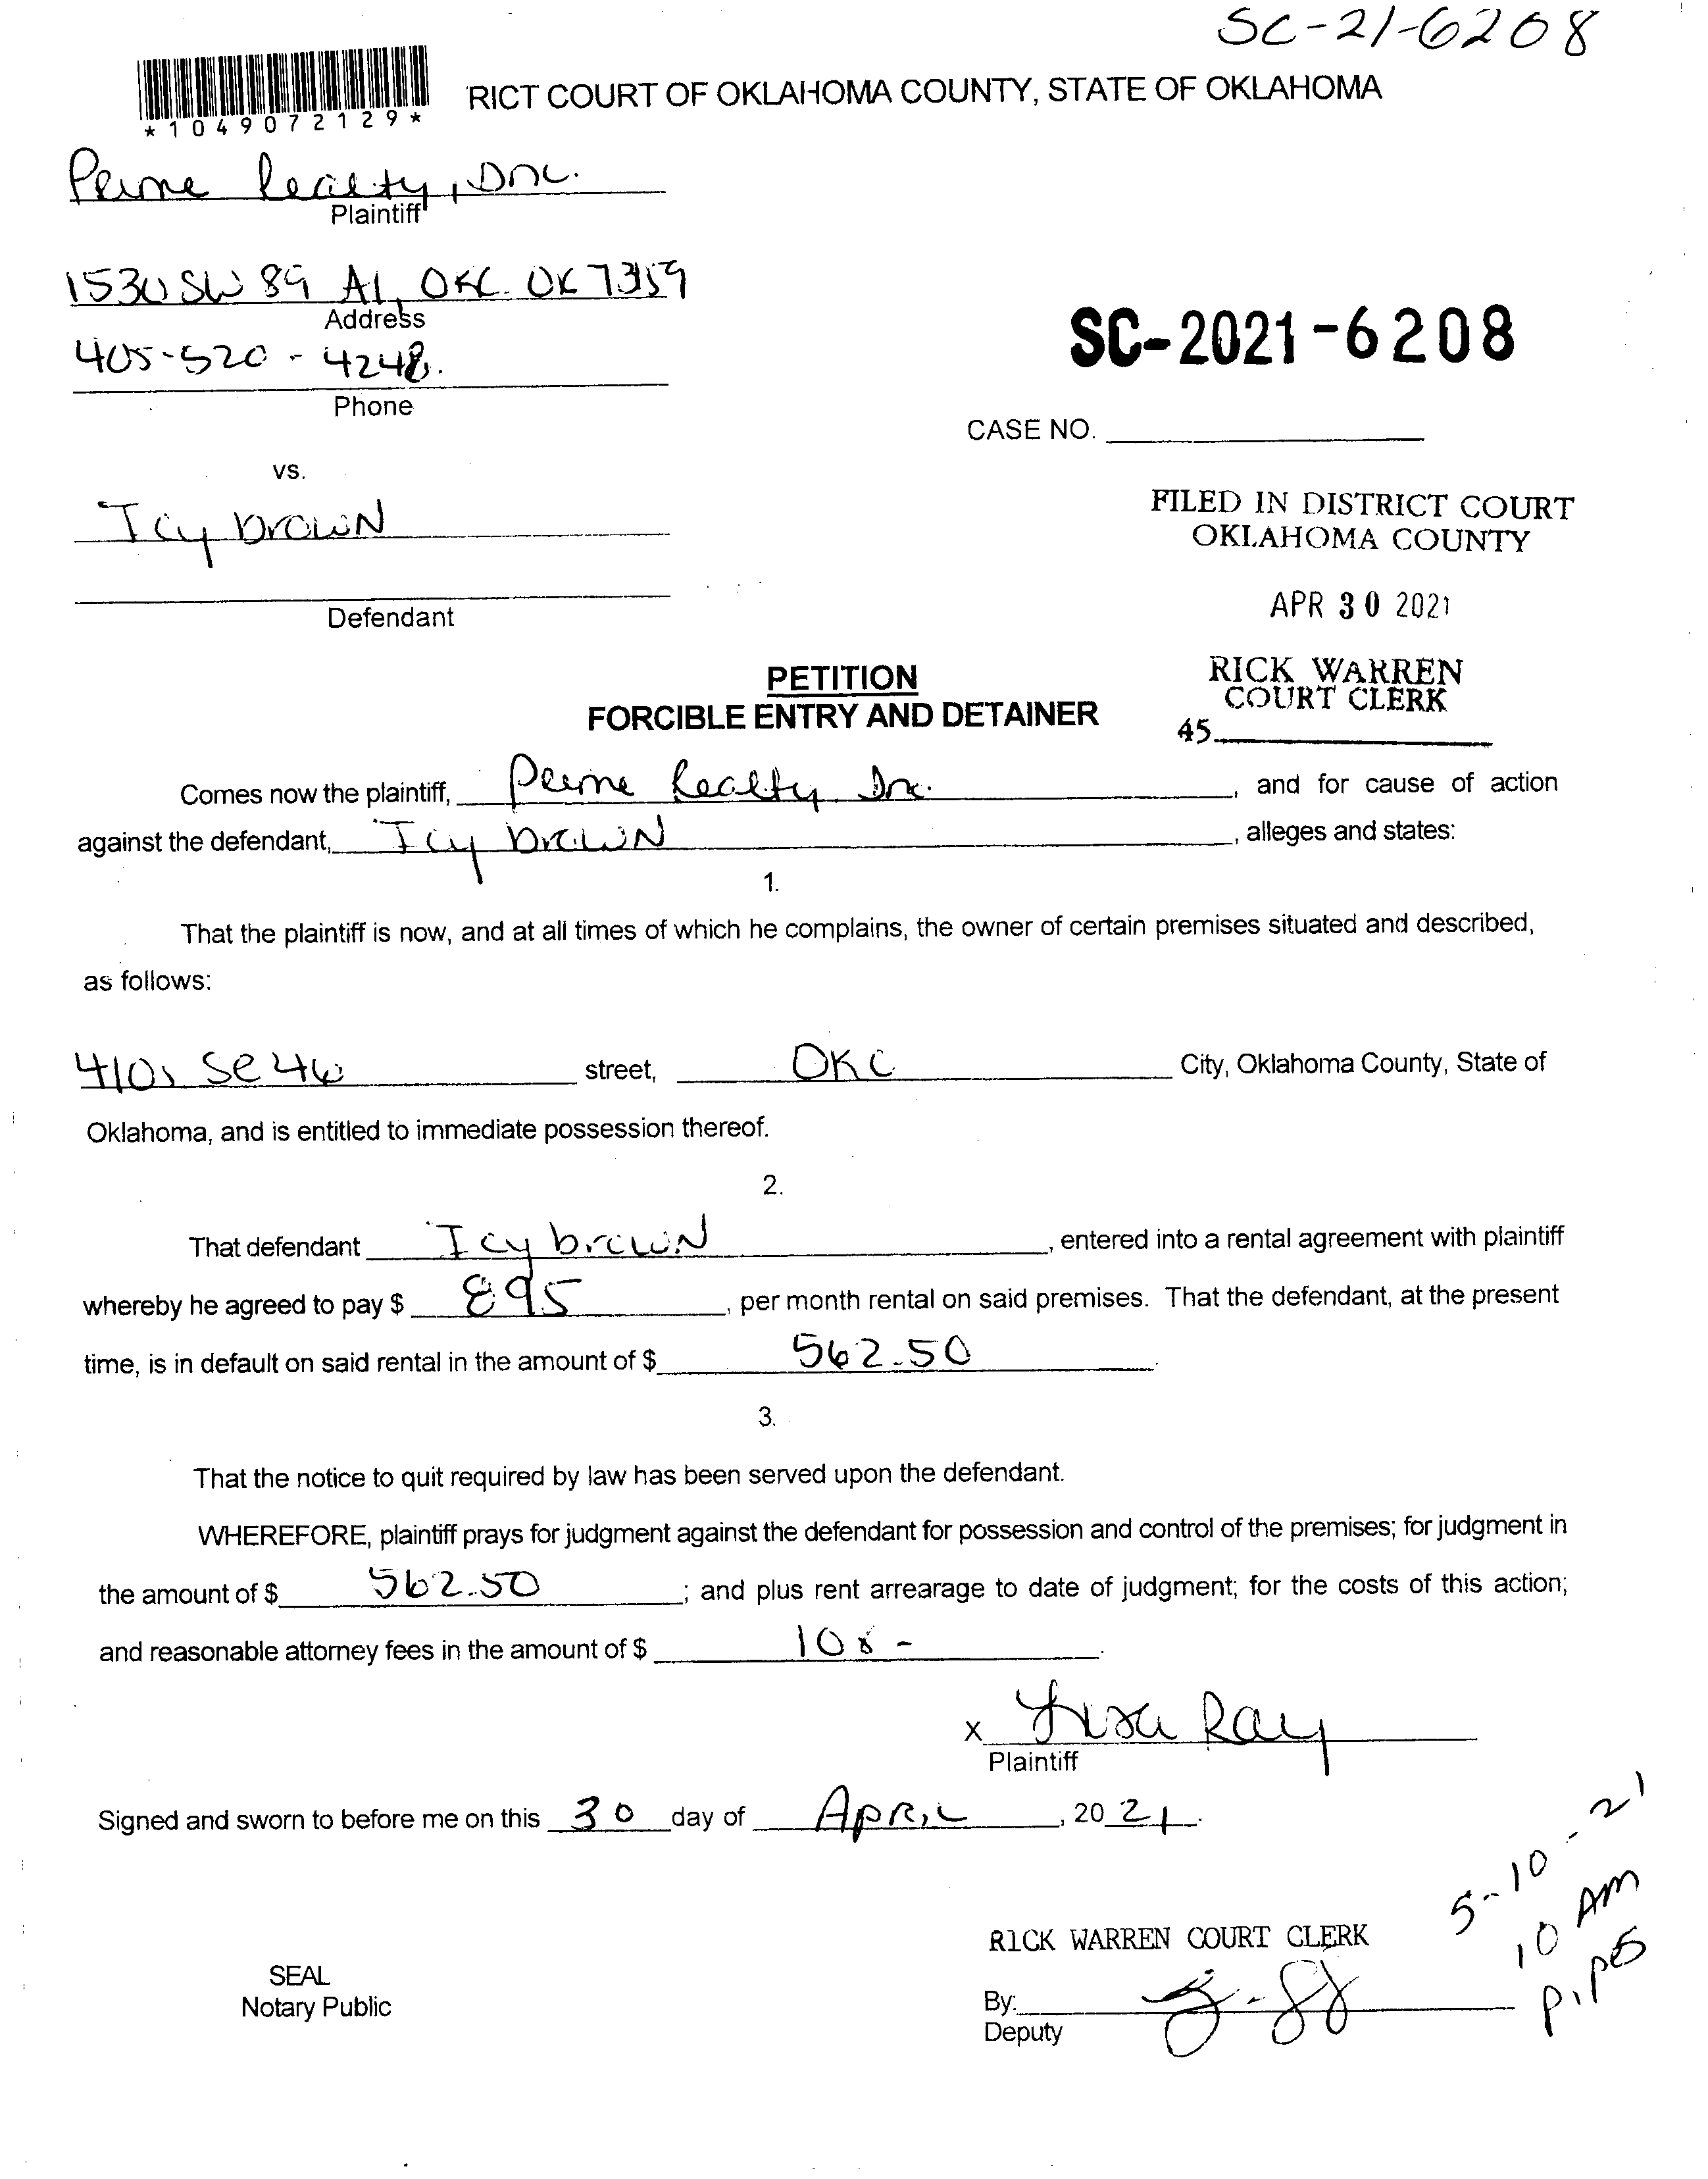 SC-21-6208
RICT COURT OF OKLAHOMA COUNTY, STATE OF OKLAHOMA
*1049072129*
Realty, Inc.
Plaintiff
SW 89 A1, OKC OK
Address
405-520-4248.
Phone
SC-2021-6208
CASE NO.
vs.
Icy brown
FILED IN DISTRICT COURT
OKLAHOMA COUNTY
Defendant
APR 30 2021
PETITION
RICK WARREN
COURT CLERK
FORCIBLE ENTRY AND DETAINER
45
Comes now the plaintiff, Realty Inc. , and for cause of action
against the defendant, Icy brown , alleges and states:
1.
That the plaintiff is now, and at all times of which he complains, the owner of certain premises situated and described,
as follows:
SE 46 street, OKC City, Oklahoma County, State of
Oklahoma, and is entitled to immediate possession thereof.
2.
That defendant Icy brown , entered into a rental agreement with plaintiff
whereby he agreed to pay $ 895 , per month rental on said premises. That the defendant, at the present
time, is in default on said rental in the amount of $ 562.50 .
3.
That the notice to quit required by law has been served upon the defendant.
WHEREFORE, plaintiff prays for judgment against the defendant for possession and control of the premises; for judgment in
the amount of $ 562.50 ; and plus rent arrearage to date of judgment; for the costs of this action;
and reasonable attorney fees in the amount of $ .
X Lisa Ray
Plaintiff
Signed and sworn to before me on this 30 day of April , 20 21 .
5-10-21
10 AM
RICK WARREN COURT CLERK
SEAL
Notary Public
By:
Deputy